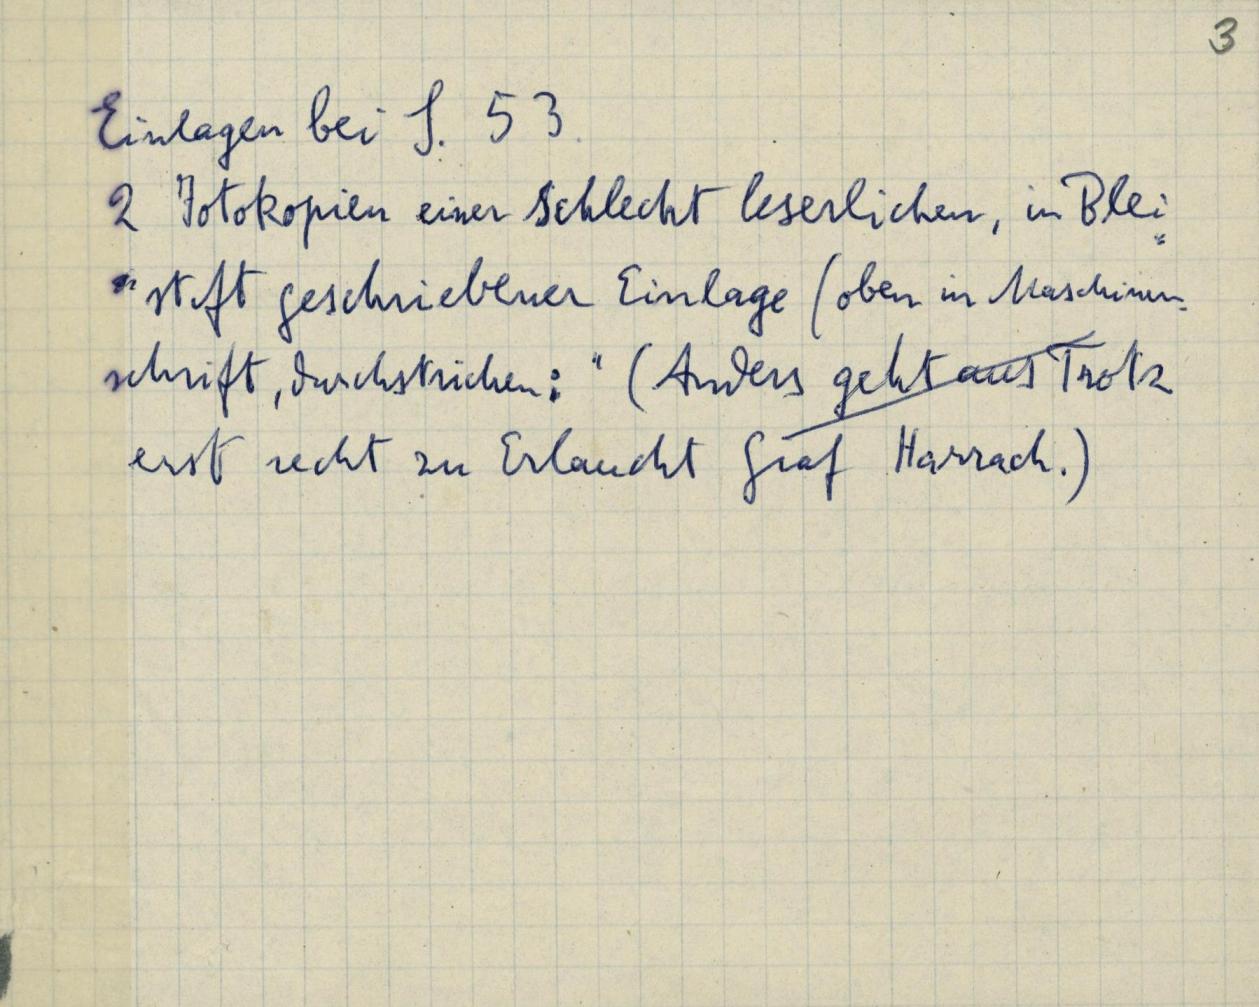 3
Einlagen bei S. 53.
2 Fotokopien einer schlecht leserlichen, in Blei„
"stift geschriebener Einlage (oben in Maschinen-
schrift, durchstrichen: " (Anders geht aus Trotz
erst recht zu Erlaucht Graf Harrach.)